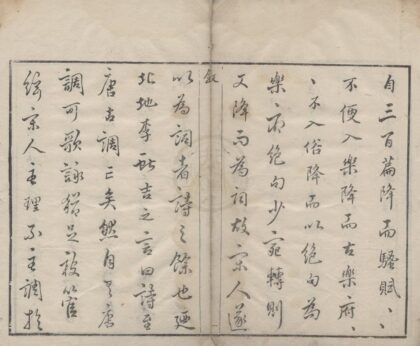 自三百篇降而騷賦、、
不便入樂降而古樂府、
、不入俗降而以絕句為
樂府絕句少宛轉則
又降而為詞故宋人遂
敘
以為詞者詩之餘也廼
北地李獻吉之言曰詩至
唐古調亡矣然自有唐
調可歌詠猶足被管
絃宋人主理不主調於